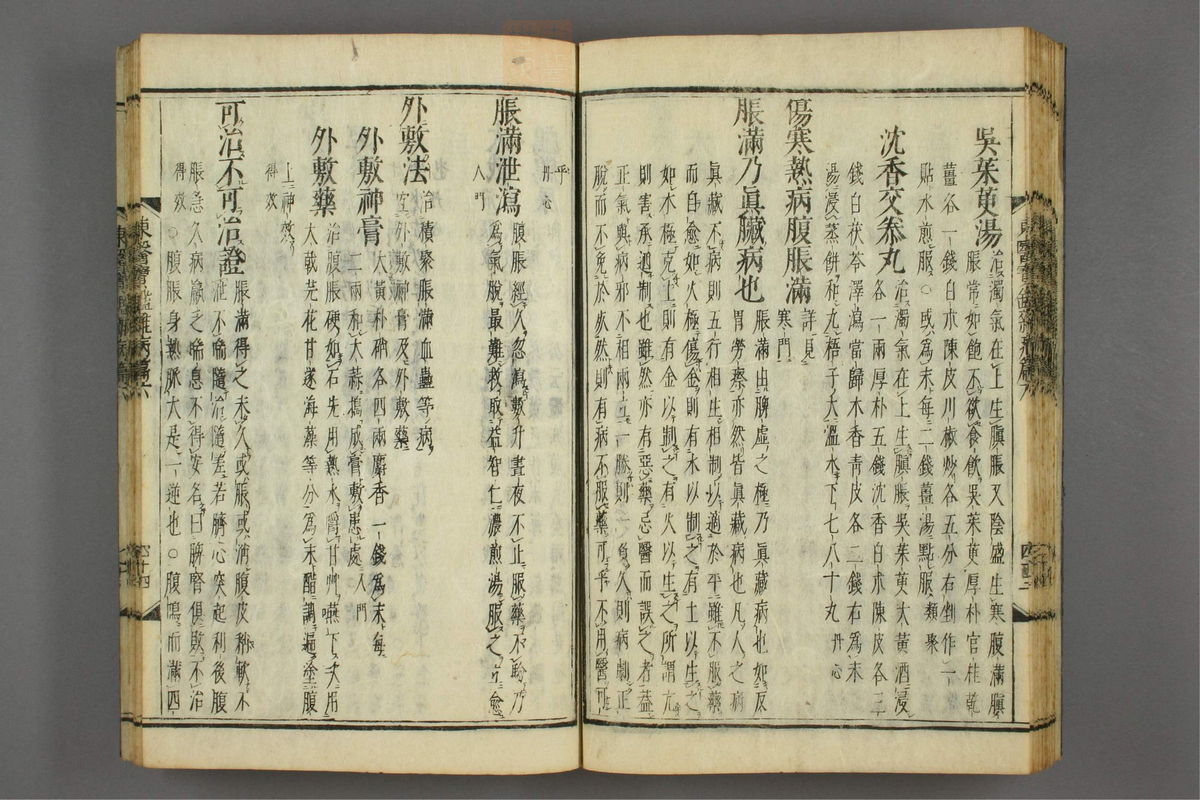 吳茱萸湯 治濁氣在上生䐜脹又陰盛生寒腹滿䐜
脹常如飽不欲食飮吳茱萸厚朴官桂乾
薑各一錢白朮陳皮川椒炒各五分右剉作一
貼水煎服○或爲末每二錢薑湯點服 類聚
沈香交泰丸 治濁氣在上生䐜脹吳茱萸大黃酒浸
各一兩厚朴五錢沈香白朮陳皮各三
錢白茯苓澤瀉當歸木香靑皮各二錢右爲末
湯浸蒸餠和丸梧子大溫水下七八十丸 丹心
傷寒熱病腹脹滿 詳見
寒門
脹滿乃眞臟病也 脹滿由脾虛之極乃眞藏病也如反
胃勞瘵亦然皆眞藏病也凡人之病
眞藏不病則五行相生相制以適於平雖不服藥
而自愈如火極傷金則有水以制之有土以生之
如水極克土則有金以制之有火以生之所謂亢
則害承迺制也雖然亦有惡藥忌醫而誤之者盖
正氣與病邪不相兩立一勝則一負久則病劇正
脫而不至於疚然則有病不服藥可乎不用醫可
東醫寶鑑雜病篇六
乎 丹心
脹滿泄瀉 腹脹經久忽瀉數升晝夜不止服藥不驗乃
爲氣脫最難救取益智仁濃煎湯服之立愈
入門
外敷法 治積聚脹滿血蠱等病
宜外敷神膏及外敷藥
外敷神膏 大黃朴硝各四兩麝香一錢爲末每
二兩和大蒜搗成膏敷患處 入門
外敷藥 治腹脹硬如石先用熱水嚼甘艸嚥下次用
大戟芫花甘遂海藻等分爲末醋調遍塗腹
上神效
得效
可治不可治證 脹滿得之未久或脹或消腹皮稍軟不
泄不喘隨治隨差若臍心突起利後腹
脹急久病羸乏喘息不得安名曰脾腎俱敗不治
得效 ○腹脹身熱脈大是一逆也○腹鳴而滿四
東醫寶鑑雜病篇六
四十四